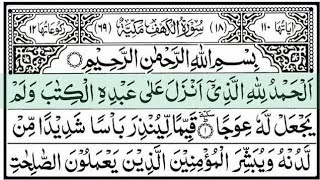 اٰیَاتُهَا ۱۱۰ (۱۸) سُوْرَةُ الْكَهْفِ مَكِّيَّةٌ (۶۹) رُكُوْعَاتُهَا ۱۲
بِسْمِ اللهِ الرَّحْمٰنِ الرَّحِيْمِ
اَلْحَمْدُ لِلّٰهِ الَّذِيْۤ اَنْزَلَ عَلٰى عَبْدِهِ الْكِتٰبَ وَلَمْ
يَجْعَلْ لَّهٗ عِوَجًا ۱ قَيِّمًا لِّيُنْذِرَ بَاْسًا شَدِيْدًا مِّنْ
لَّدُنْهُ وَيُبَشِّرَ الْمُؤْمِنِيْنَ الَّذِيْنَ يَعْمَلُوْنَ الصّٰلِحٰتِ